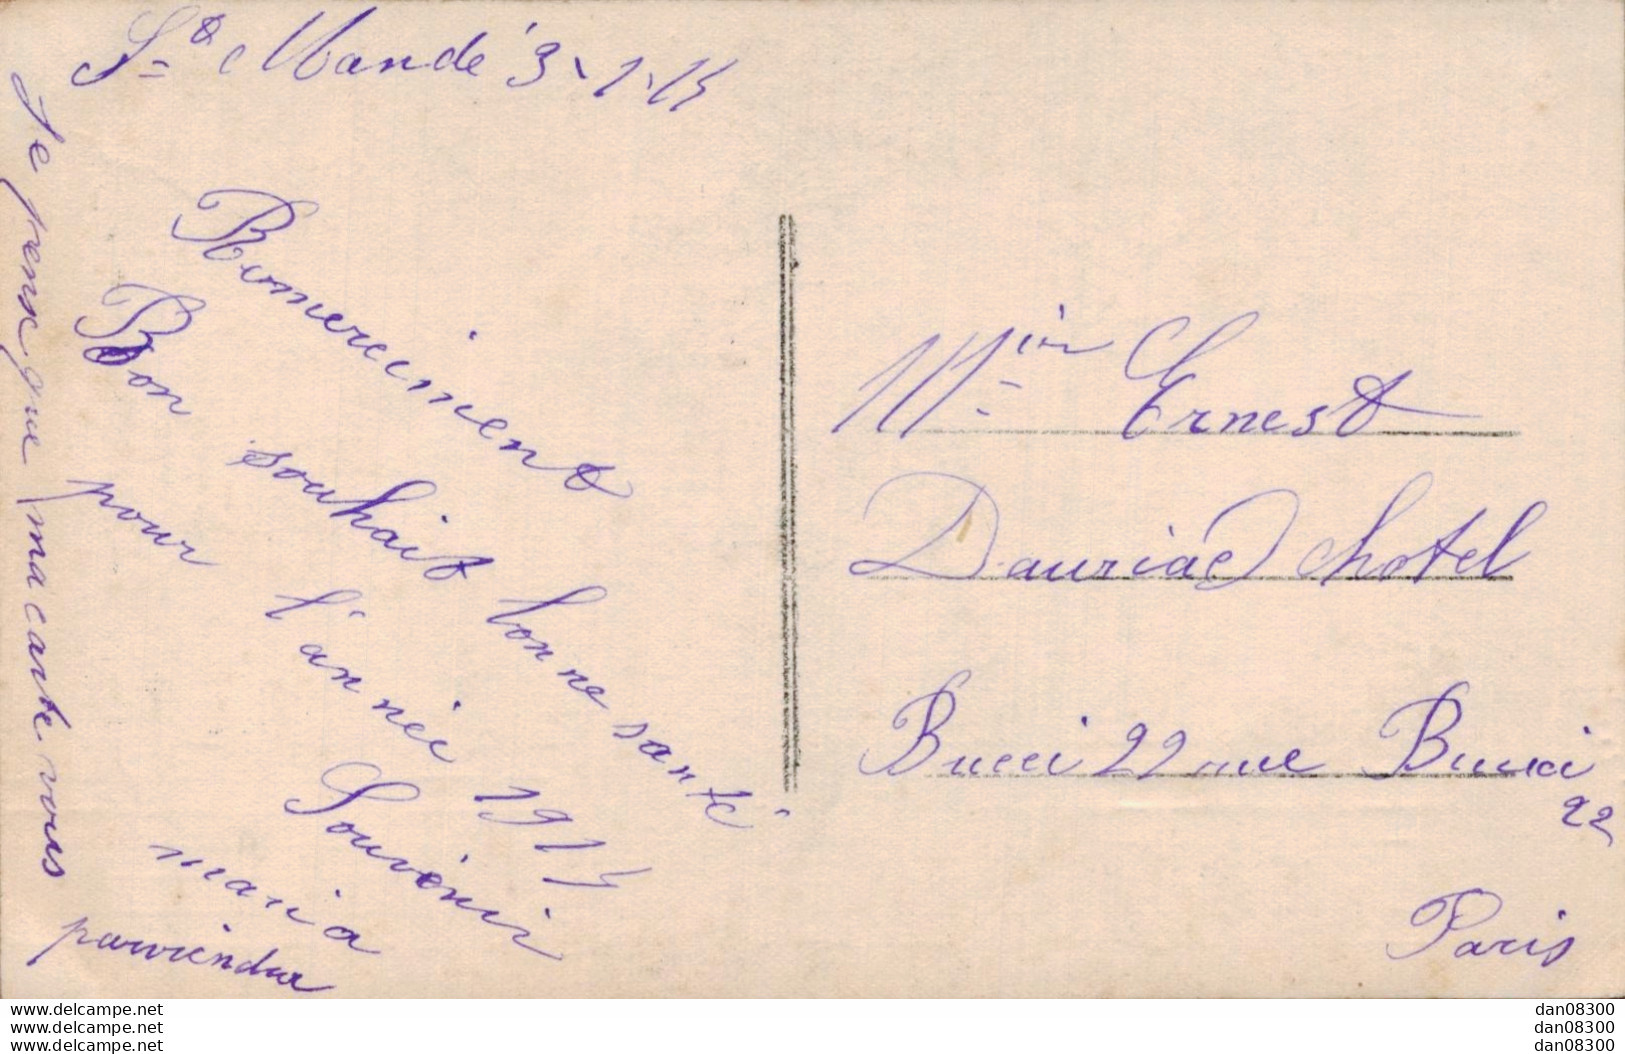 St Mandé 3-1-15
Remerciment
Bon souhait bonne santé
pour l'année 1915
Souvenir
maria
Je pense que ma carte vous
parviendra
Mr Ernest
Dauriac hotel
Bucci 22 rue Bucci
22
Paris
www.delcampe.net
www.delcampe.net
www.delcampe.net
dan08300
dan08300
dan08300